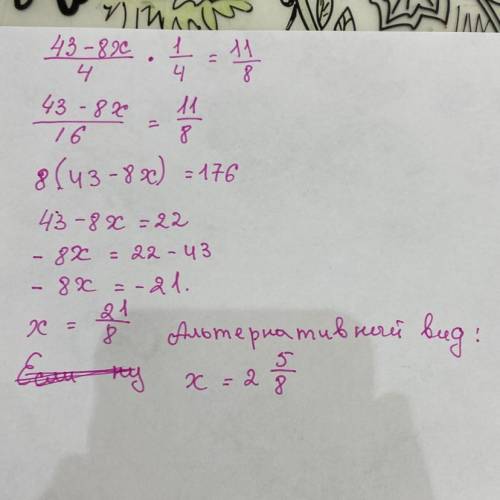 (43-8x)/4 · 1/4 = 11/8
(43-8x)/16 = 11/8
8(43-8x) = 176
43-8x = 22
-8x = 22-43
-8x = -21.
x = 21/8 Альтернативный вид:
Если ну x = 2 5/8